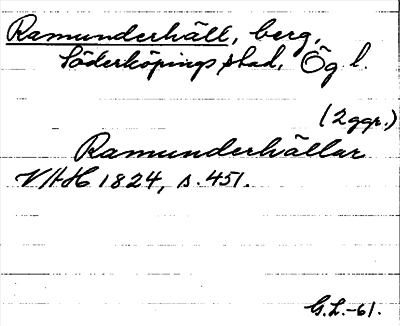 Ramunderhäll, berg,
Söderköpings stad, Ög l.
(2 ggr.)
Ramunderhällar
VAH 1824, s. 451.
G.L.-61.